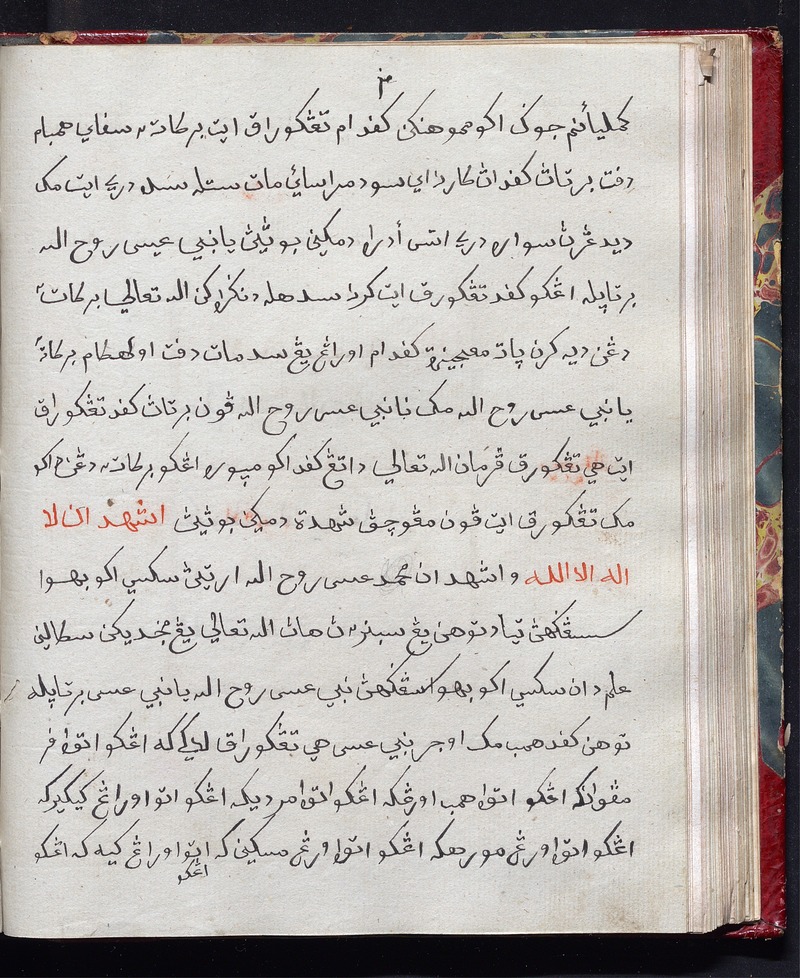 ٣
كملياءنم جوك اكو مموهنكن كفدام تڠكورق ايت بركات٢ سفاي همبام
دفت برتاث كفداث كارنا اي سوده مراسائي مات ستله سده دري ايت مك
ديدڠرث سواره دري اتس أدارا دمكين بوثيث يانبي عيسى روح الله
برتاپله اڠكو كفد تڠكورق ايت كرنا سدهله دنكراكن الله تعالى بركات٢
دڠن ديه كرن پات معجيزة كفدام اورڠ يڠ سده مات دفت اوله كام بركات٢
يانبي عيسى روح الله مك نانبي عيسى روح الله ڤون برتاث كفد تڠكورق
ايت هي تڠكورق ڤرمان الله تعالى داتڠ كفد اكو مپوره اڠكو بركات٢ دڠن اكو
مك تڠكورق ايت ڤون مڠوچق شهدة دمكين بوثيث اشهد ان لا
اله الا الله واشهد ان محمد عيسى روح الله ارتيث سكسي اكو بهوا
سسڠكهث تياد توهن يڠ سبنر٢ث هاث الله تعالى يڠ مجديكن سكالين
علم دان سكسي اكو بهوا سڠكهث نبي عيسى روح الله يانبي عيسى برتاپله
توهن كفد همب مك اوجر نبي عيسى هي تڠكورق لاكي٢كه اڠكو اتوا ڤر
مڤوانكه اڠكو اتوا همب اورڠكه اڠكو اتوا مرديكه اڠكو اتوا اورڠ كيكيركه
اڠكو اتوا اورڠ مورهكه اڠكو اتوا اورڠ مسكين كه اتوا اورڠ كيه كه اڠكو
اڠكو